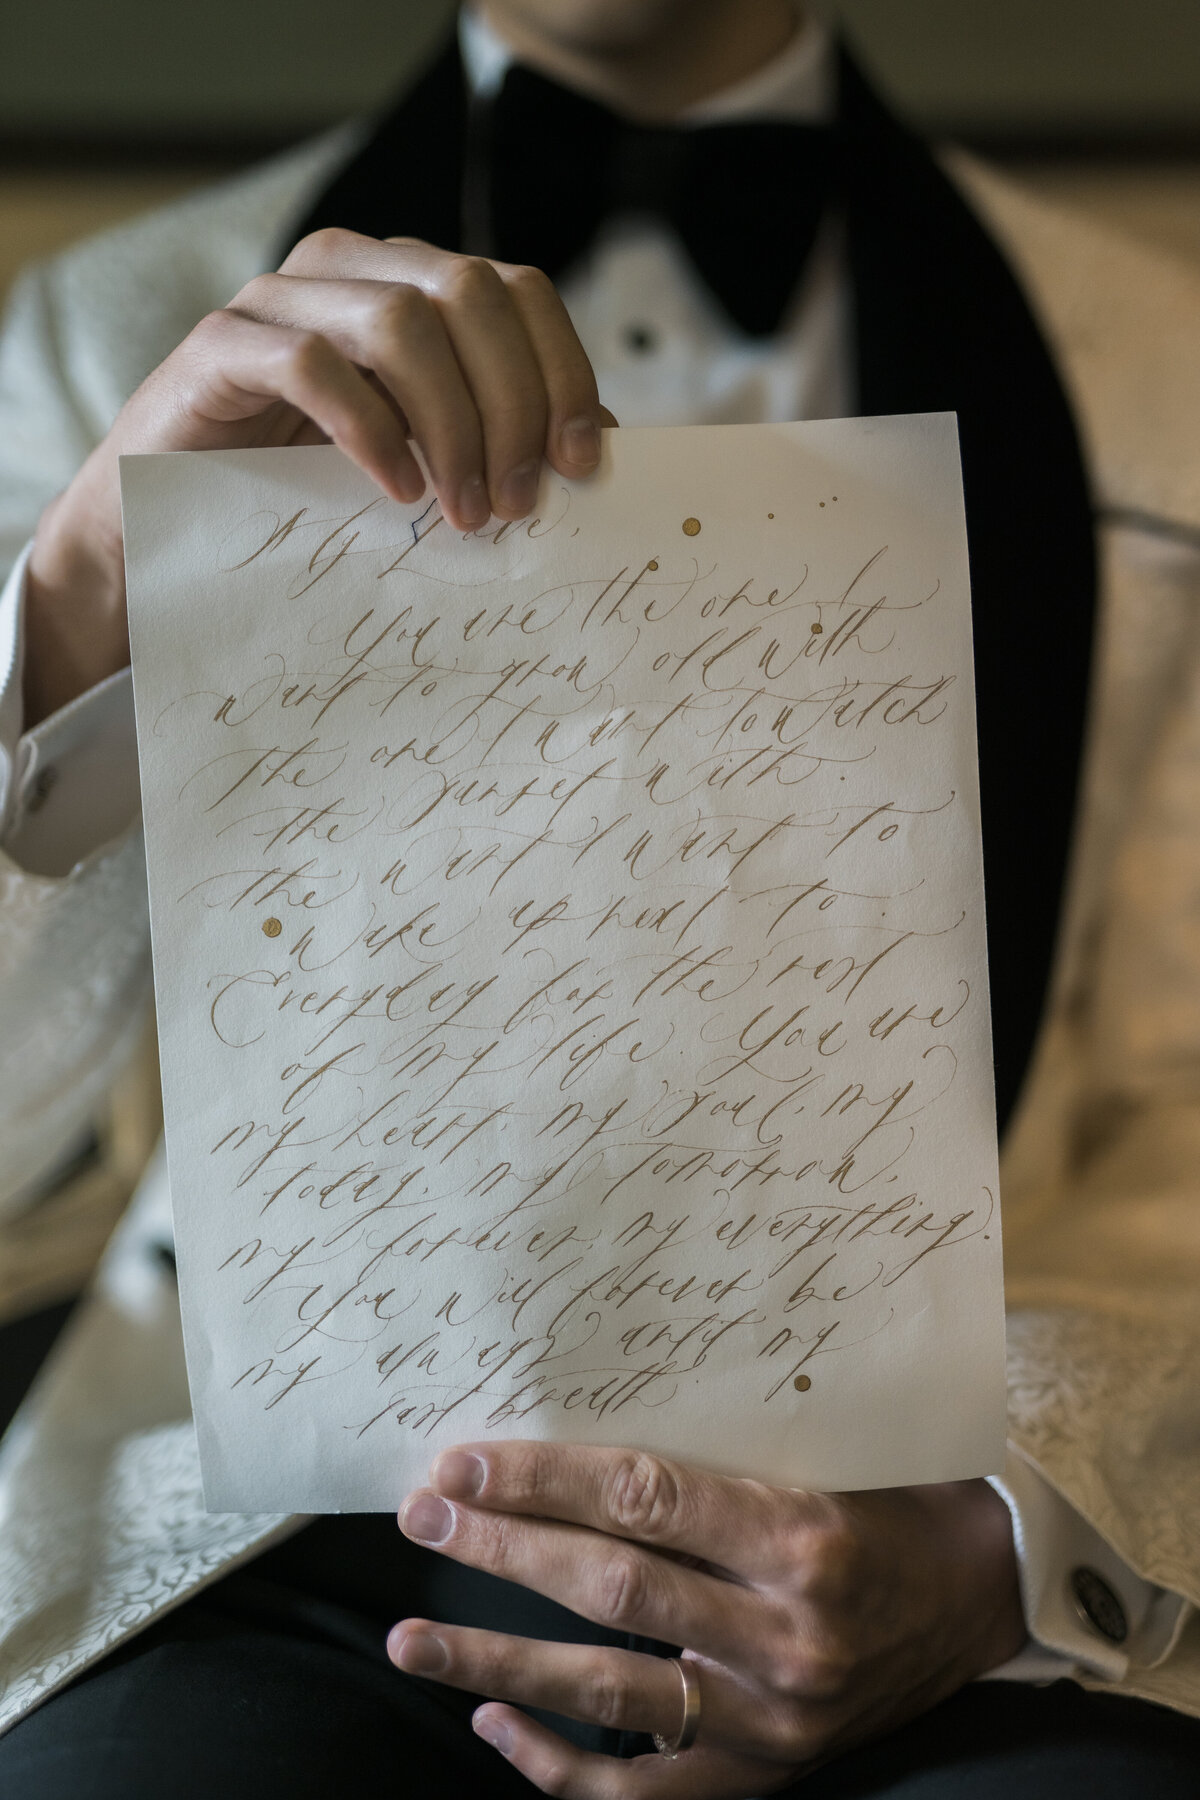 My Love,
You are the one I
want to grow old with
the one I want to watch
the sunset with.
the want I want to
wake up next to.
Everyday for the rest
of my life. You are
my heart, my soul, my
today, my tomorrow,
my forever, my everything.
You will forever be
my always until my
last breath.